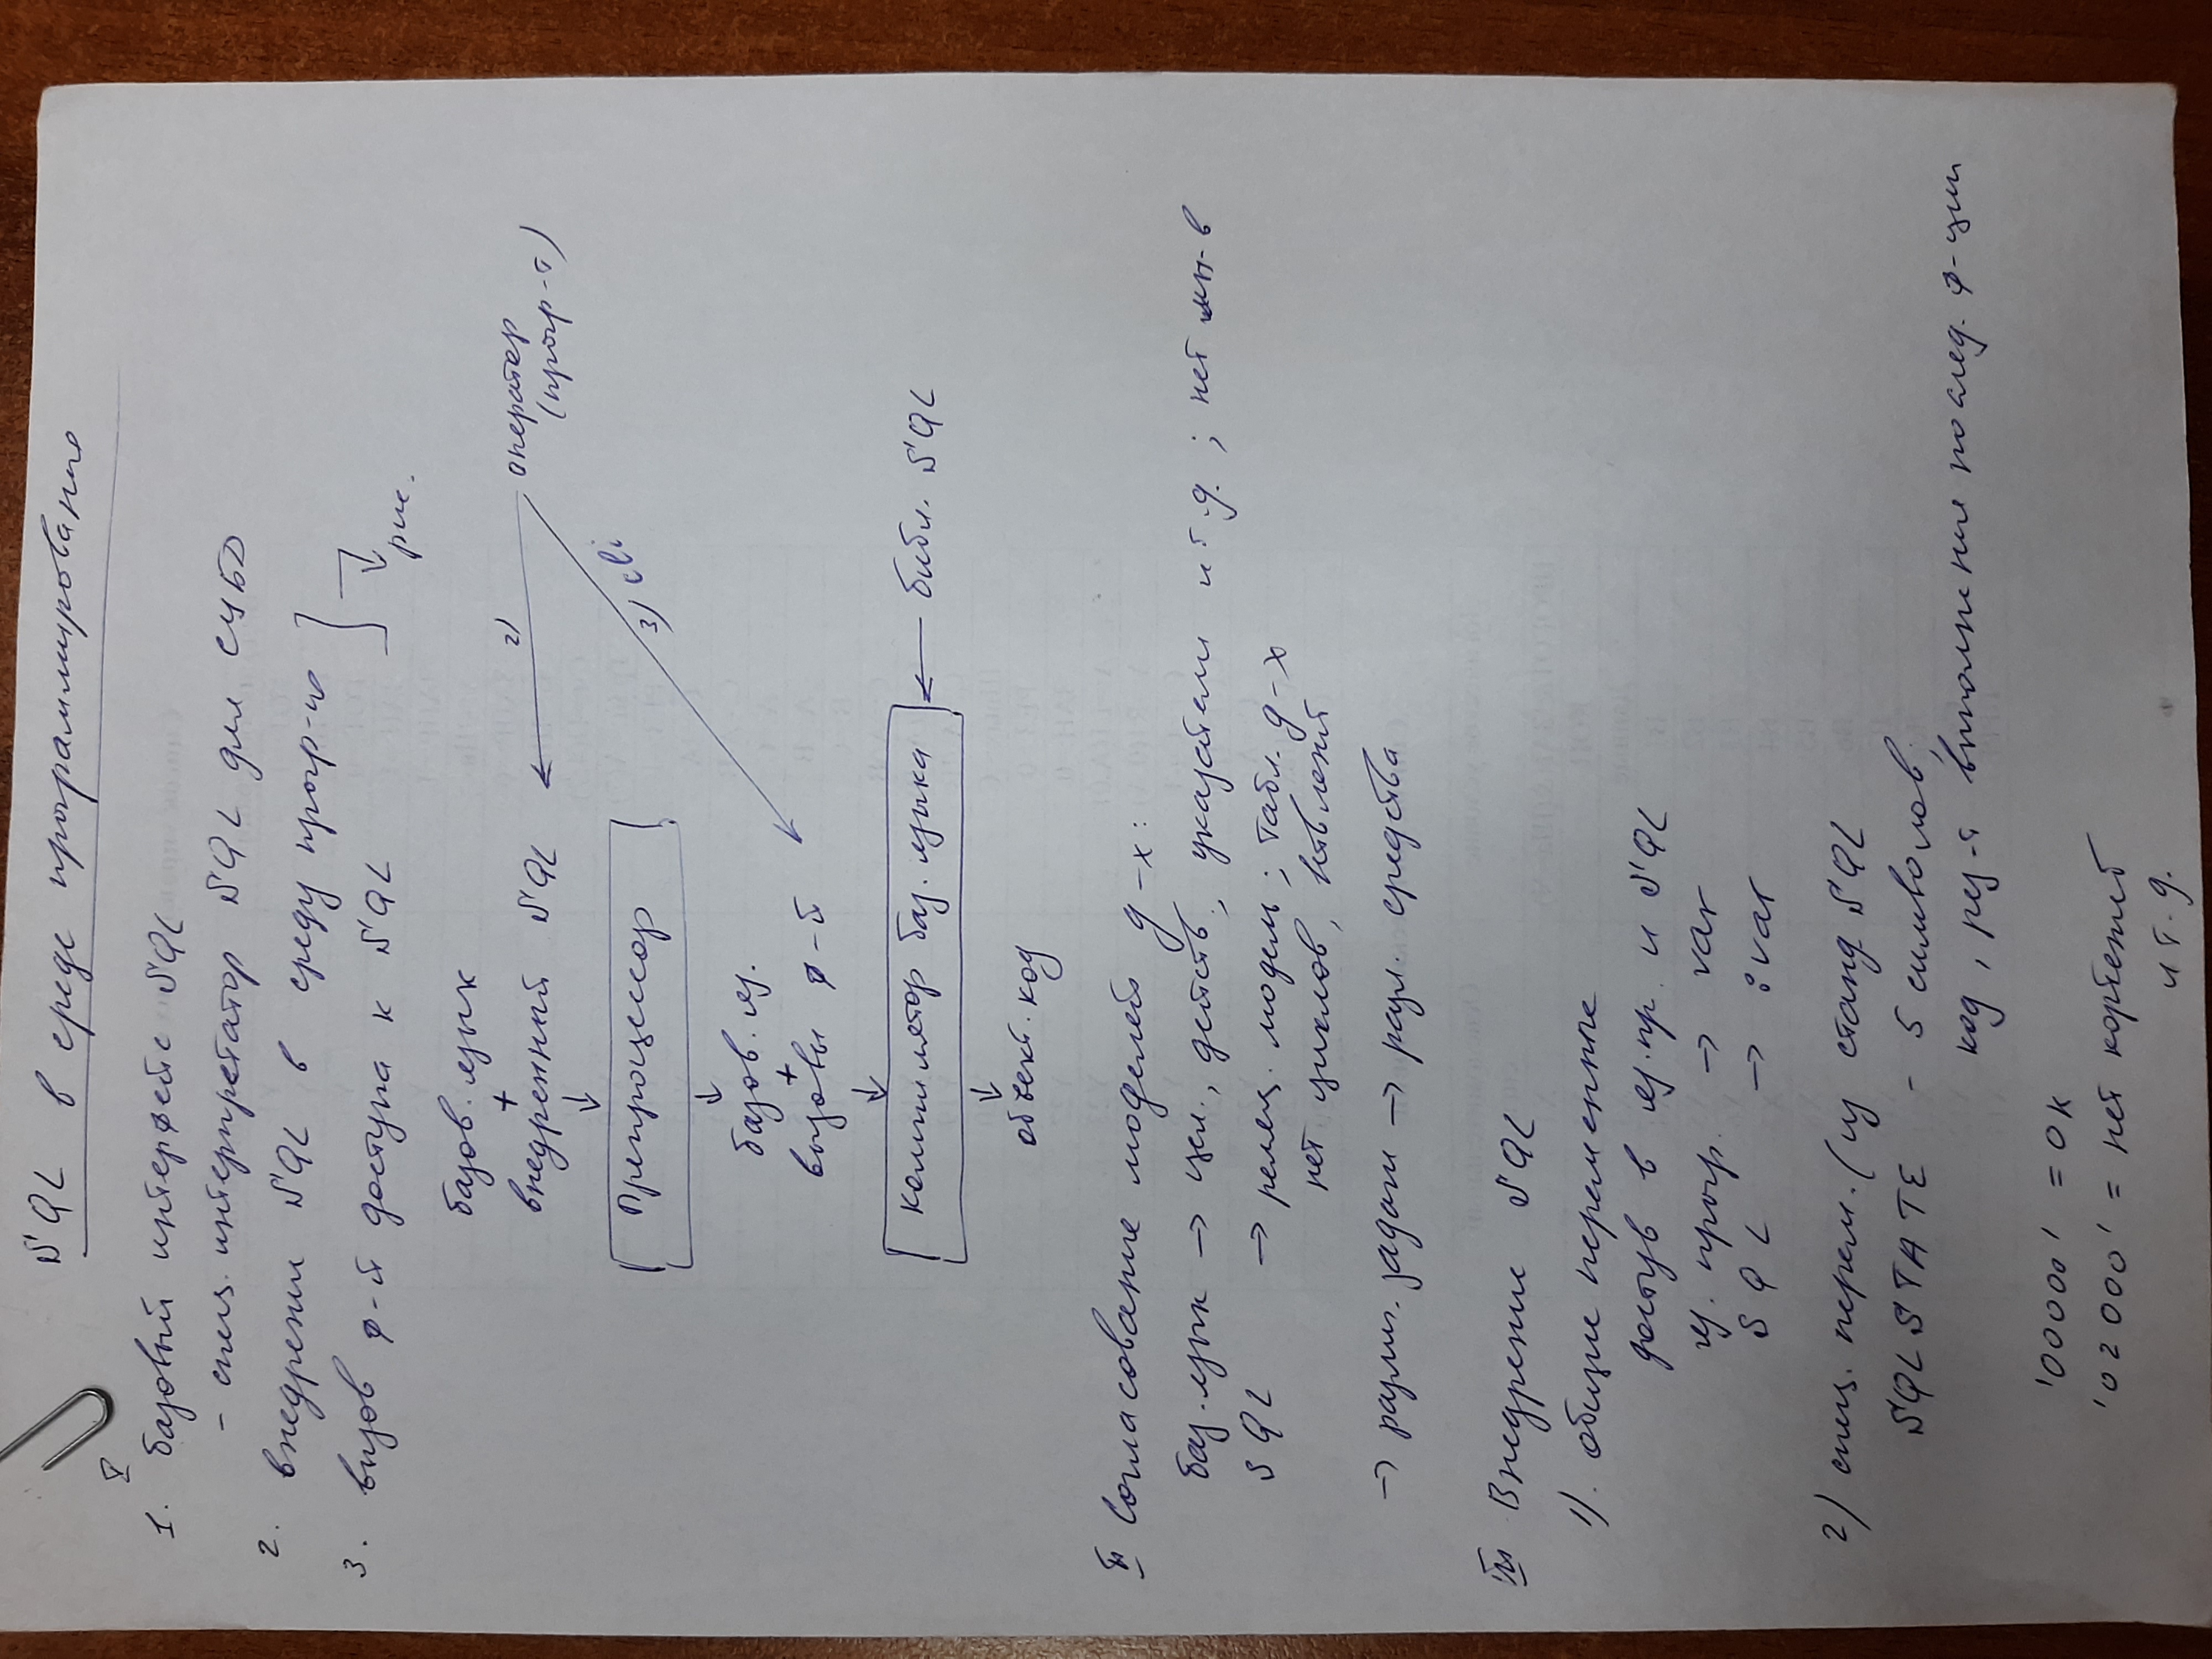 SQL в среде программирования
I
1. базовый интерфейс SQL
- спец. интерпретатор SQL для СУБД
2. внедрение SQL в среду прогр-я
3. вызов ф-й доступа к SQL
рис.
базов. язык
+
внедренный SQL
2)
оператор
(прогр-т)
Препроцессор
3) cli
базов. яз.
+
вызовы ф-й
компилятор баз. языка
библ. SQL
объект. код
II Согласование моделей д-х:
баз. язык → цел., действ., указатели и т.д.; нет мн-в
SQL → реляц. модель; табл. д-х
нет циклов, ветвлений
→ различ. задачи → разл. средства
III Внедрение SQL
1). общие переменные
доступ в яз. пр. и SQL
яз. прогр. → var
SQL → :var
2) спец. перем. (из станд SQL
SQLSTATE - 5 символов,
код, рез-т выполнение послед. ф-ции
'00000' = OK
'02000' = нет кортежей
и т.д.